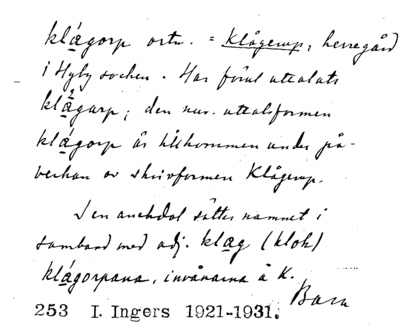 klágorp ortn. = Klågerup, herregård
i Hyby socken. Har förut uttalats
klágarp; den nuv. uttalsformen
klágorp är tillkommen under på-
verkan av skrivformen Klågerup.
I en anekdot sättes namnet i
samband med adj. klæg (klok)
klágorpana, invånarna å K.
Bara
253 I. Ingers 1921-1931.